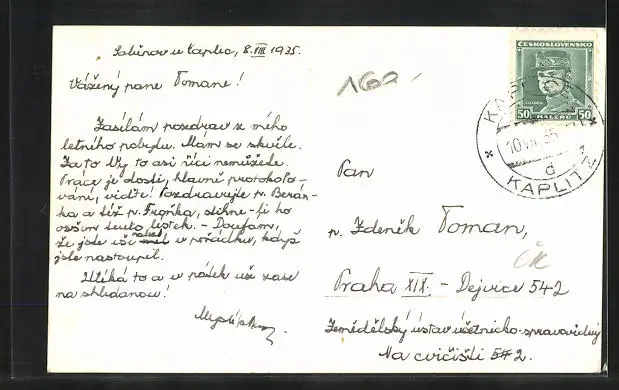 u Kaplic, 8.VIII 1935.
Vážený pane Tomane!
Zasílám pozdrav z mého
letního pobytu. Mám se skvěle.
Za to Vy to asi říci nemůžete.
Práce je dosti, hlavně protokolo-
vání, viďte! Pozdravujte p. Berán-
ka a též p. Froňka, stihne-li ho
tento lístek. - Doufám,
že jste již v pořádku, když
jste nastoupil.
Utíká to a v pátek už zase
na shledanou!
160
ČESKOSLOVENSKO
50 HALÉŘŮ 50
KAPLICE
10.VIII.35
d
KAPLITZ
Pan
p. Zdeněk Toman,
Praha XIX. - Dejvice 542
Zemědělský ústav účetnicko-spravovědný
Na cvičišti 542.